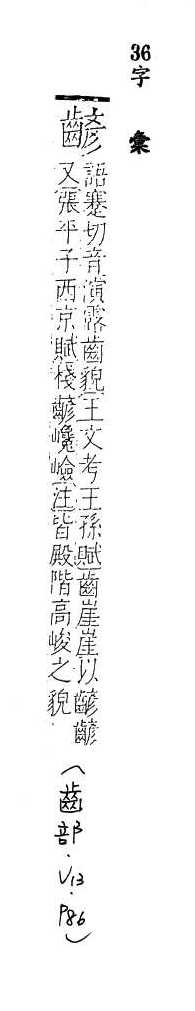 36字彙
齴
語蹇切音演露齒貌王文考王孫賦齒崖崖以齴齴
又張平子西京賦棧齴巉嶮注皆殿階高峻之貌
(齒部.V13.P86)